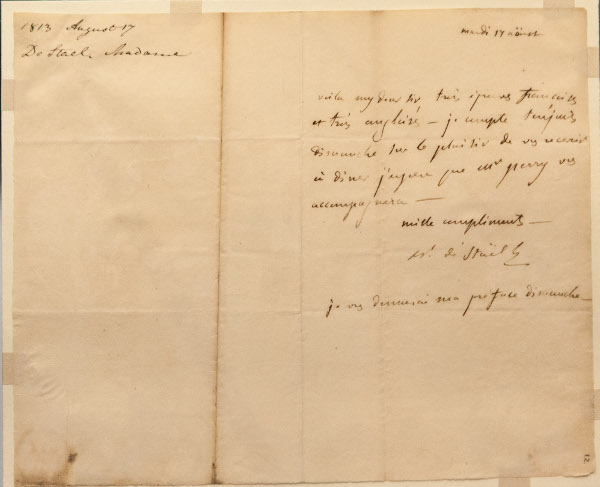 1813 August 17
De Stael, Madame
mardi 17 aoust
voila my dear sir, trois epreuves françaises
et trois anglaises – je compte toujours
dimanche sur le plaisir de vous recevoir
à diner j'espère que Mr perry vous
accompagnera –
mille compliments –
de Staël h
je vous donnerai ma préface dimanche –
12